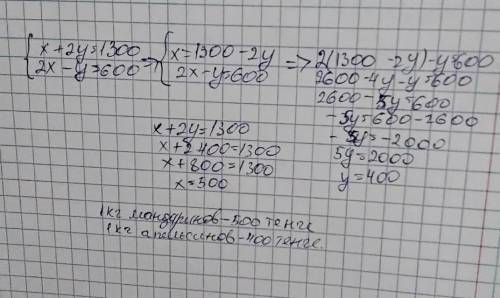 {x+2y=1300 => {x=1300-2y => 2(1300-2y)-y=600
{2x-y=600 {2x-y=600 2600-4y-y=600
2600-5y=600
-5y=600-2600
-5y=-2000
5y=2000
y=400
x+2y=1300
x+2·400=1300
x+800=1300
x=500
1кг мандаринов-500 тенге
1кг апельсинов-400 тенге.